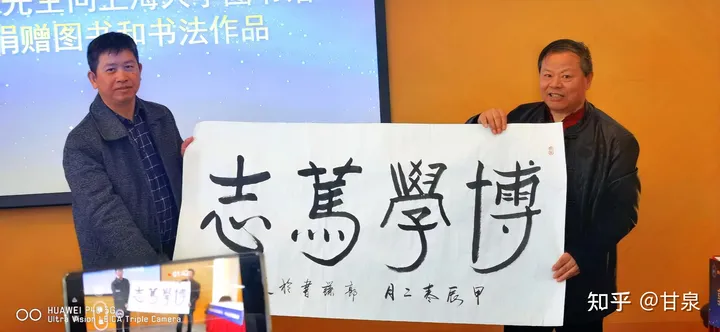 先生向上海大学图书馆
捐赠图书和书法作品
博學篤志
甲辰春二月 郭 書於
博學篤志
HUAWEI
Ultra Vision LEICA Triple Camera
知乎 @甘泉